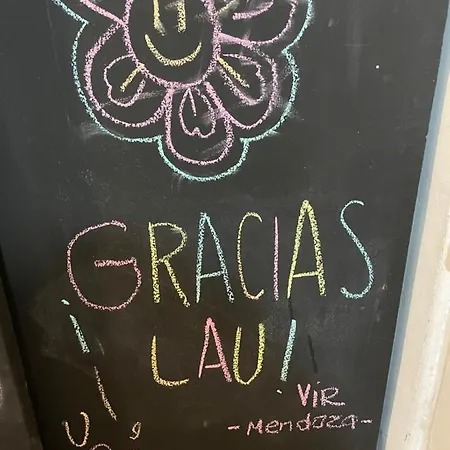 GRACIAS
¡LAU!
VIR
-Mendoza-